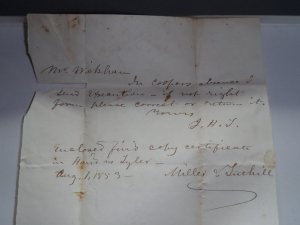 Mr Wickham
In Coopers absence I
send execution - if not right
form please correct or return it.
Yours
J.H.T.
Enclosed find copy certificate
in Hand vs Tyler -
Aug. 1, 1853 -
Miller & Tuthill